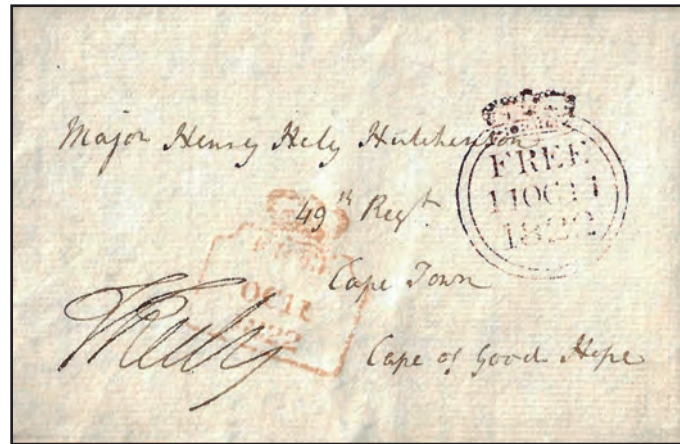 Major Henry Hely Hutchinson
49th Regt.
Cape Town
Cape of Good Hope
FREE
11 OC 11
1822
OC 11
1822